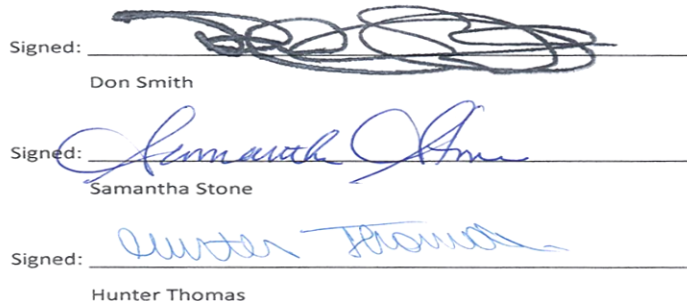 Signed:
Don Smith
Signed: Samantha Stone
Samantha Stone
Signed: Hunter Thomas
Hunter Thomas